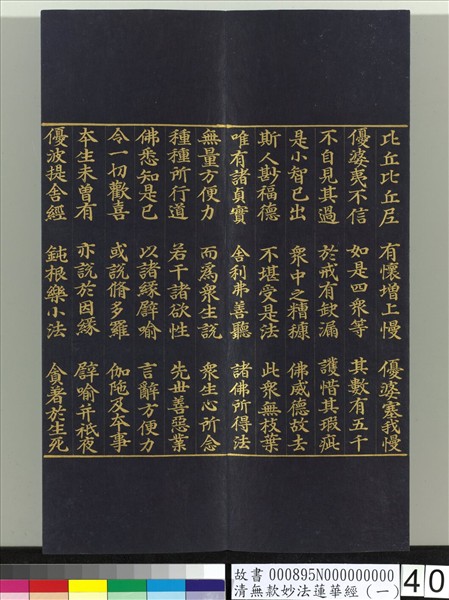 比丘比丘尼 有懷增上慢 優婆塞我慢
優婆夷不信 如是四衆等 其數有五千
不自見其過 於戒有缺漏 護惜其瑕疵
是小智已出 衆中之糟糠 佛威德故去
斯人尠福德 不堪受是法 此衆無枝葉
唯有諸貞實 舍利弗善聽 諸佛所得法
無量方便力 而爲衆生說 衆生心所念
種種所行道 若干諸欲性 先世善惡業
佛悉知是已 以諸緣譬喻 言辭方便力
令一切歡喜 或說脩多羅 伽陁及本事
本生未曾有 亦說於因緣 譬喻并祇夜
優波提舍經 鈍根樂小法 貪著於生死
故書 000895N000000000
清無款妙法蓮華經（一）
40